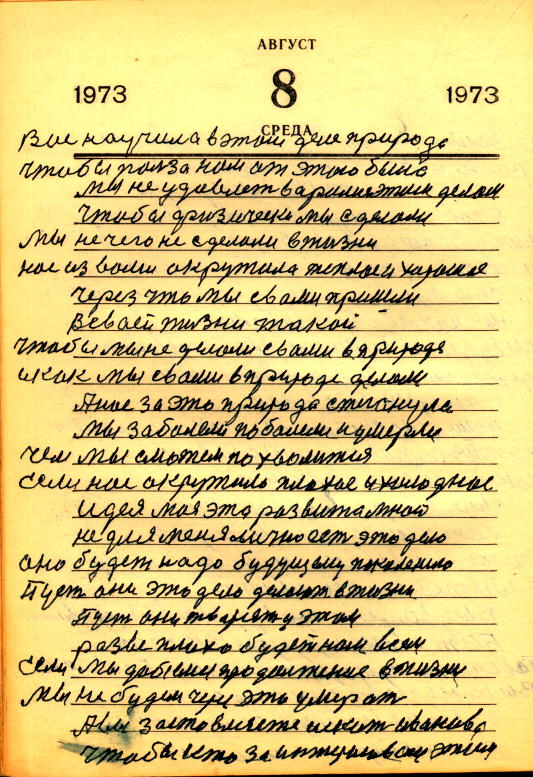 АВГУСТ
1973 8 1973
СРЕДА
Вас научила в этом деле природа
чтобы полза нам от этого была
мы не удовлетварялис этим делом
Чтобы физически мы сделали
Мы нечего не сделали в жизни
нас из вами окружила теплое и харошее
Через что мы свами пришли
В сваей жизни такой
чтобы мы не делали свами в природе
и как мы свами в природе делали
А нас за это природа стегнула
Мы заболели поболели и умерли
чем мы сможем похволится
если нас окружило плохое и холодное
идея моя это развита мной
не для меня личност это дело
оно будет надо будущему поколению
Пуст они это дело делают в жизни
Пуст они тварят у этом
разве плохо будет нам всем
если мы добъемся продолжение в жизни
Мы не будем чере это умерат
А мы заставляете искат иванова
Чтобы кто заинтерисовался этим